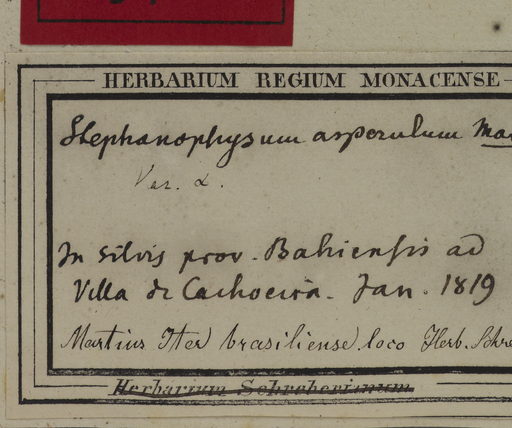 HERBARIUM REGIUM MONACENSE
Stephanophysum asperulum Mar
Var. α.
In silvis prov. Bahiensis ad
Villa de Cachoeira. Jan. 1819
Martius Iter brasiliense. loco Herb. Schre
Herbarium Schreberianum